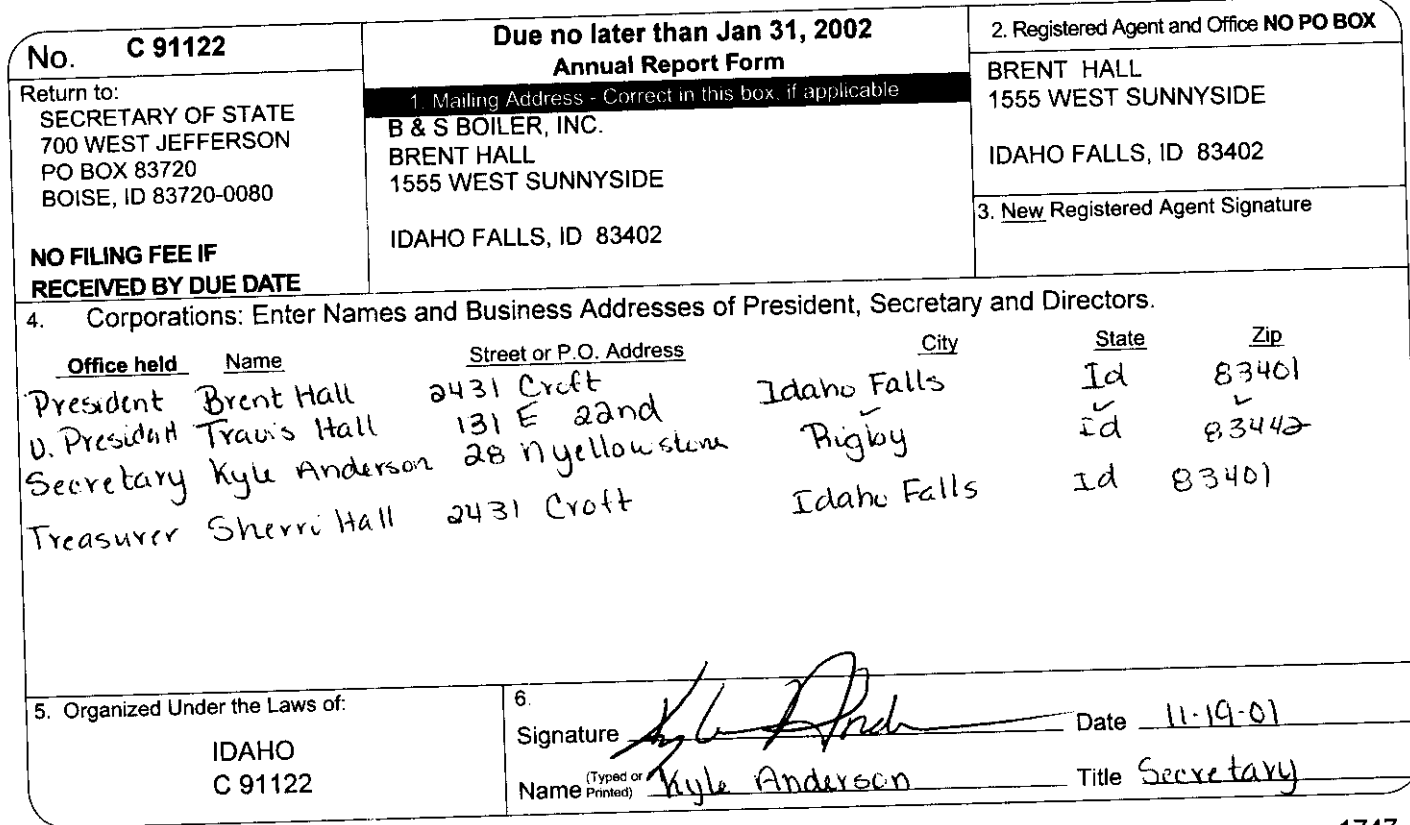 No. C 91122
Return to:
SECRETARY OF STATE
700 WEST JEFFERSON
PO BOX 83720
BOISE, ID 83720-0080
NO FILING FEE IF
RECEIVED BY DUE DATE
Due no later than Jan 31, 2002
Annual Report Form
1. Mailing Address - Correct in this box, if applicable
B & S BOILER, INC.
BRENT HALL
1555 WEST SUNNYSIDE
IDAHO FALLS, ID 83402
2. Registered Agent and Office NO PO BOX
BRENT HALL
1555 WEST SUNNYSIDE
IDAHO FALLS, ID 83402
3. New Registered Agent Signature
4. Corporations: Enter Names and Business Addresses of President, Secretary and Directors.
Office held Name Street or P.O. Address City State Zip
President Brent Hall 2431 Croft Idaho Falls Id 83401
V. President Travis Hall 131 E 22nd ✓ ✓ ✓
Secretary Kyle Anderson 28 N yellowstone Rigby id 83442
Treasurer Sherri Hall 2431 Croft Idaho Falls Id 83401
5. Organized Under the Laws of:
IDAHO
C 91122
6.
Signature Kyle Ande Date 11-19-01
Name (Typed or Printed) Kyle Anderson Title Secretary